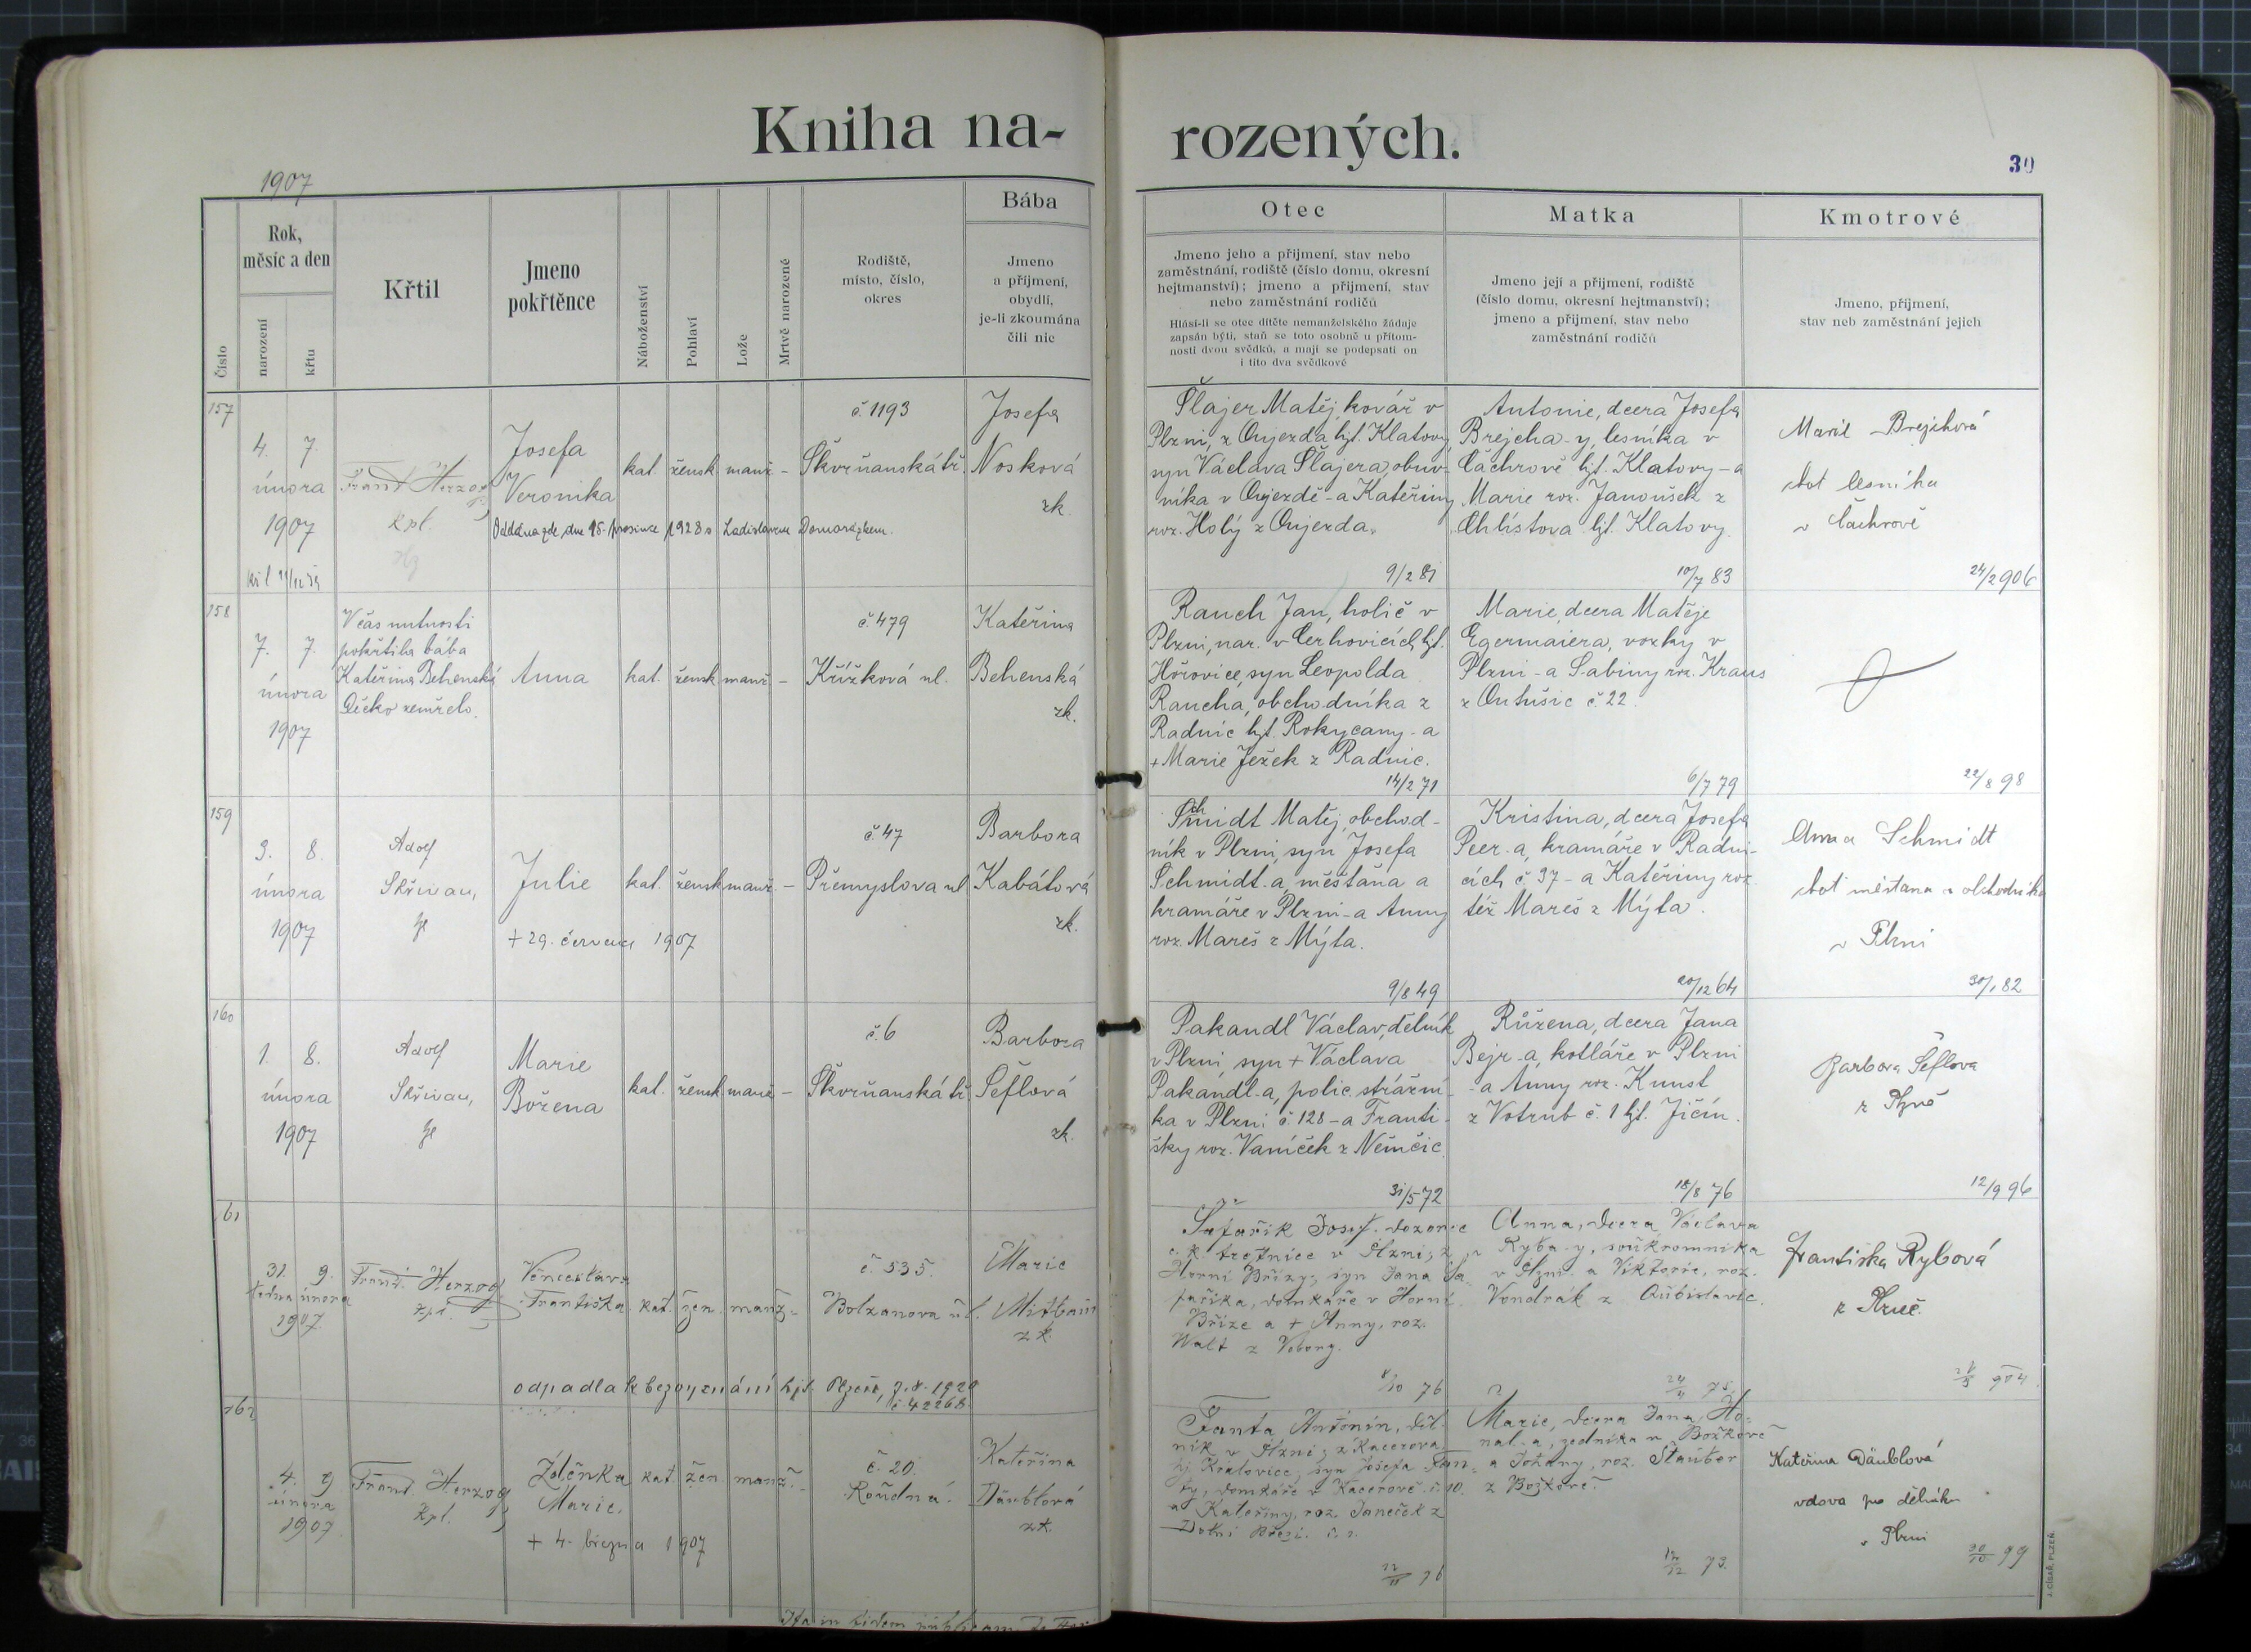 Kniha na-
rozených.
30
1907
Číslo
Rok,
měsíc a den
narození
křtu
Křtil
Jmeno
pokřtěnce
Náboženství
Pohlaví
Lože
Mrtvě narozené
Rodiště,
místo, číslo,
okres
Bába
Jmeno
a příjmení,
obydlí,
je-li zkoumána
čili nic
Otec
Jmeno jeho a přijmení, stav nebo
zaměstnání, rodiště (číslo domu, okresní
hejtmanství); jmeno a přijmení, stav
nebo zaměstnání rodičů
Hlásí-li se otec dítěte nemanželského žádaje
zapsán býti, staň se toto osobně u přítom-
nosti dvou svědků, a mají se podepsati on
i tito dva svědkové
Matka
Jmeno její a přijmení, rodiště
(číslo domu, okresní hejtmanství);
jmeno a přijmení, stav nebo
zaměstnání rodičů
Kmotrové
Jmeno, přijmení,
stav neb zaměstnání jejich
157
4. 7.
února
1907
Frant. Herzog
kpl.
Josefa
Veronika
kat. žensk. manž. -
č. 1193
Škvrňanská tř.
Josefa
Nosková
zk.
Oddána zde dne 15. prosince 1928 s Ladislavem Domorázkem.
Šlajer Matěj, kovář v
Plzni, z Oujezda hjt. Klatovy,
syn Václava Šlajera, obuv-
níka v Oujezdě - a Kateřiny
roz. Holý z Oujezda.
9/2 81
Antonie, dcera Josefa
Brejcha-y, lesníka v
Čachrově hjt. Klatovy - a
Marie roz. Janoušek z
Chlístova hjt. Klatovy.
10/7 83
Marie Brejchová
chot lesníka
v Čachrově
24/2 906
158
7. 7.
února
1907
V čas nutnosti
pokřtila bába
Kateřina Behenská
Děcko zemřelo.
Anna
kat. žensk. manž. -
č. 479
Křížková ul.
Kateřina
Behenská
zk.
Rauch Jan, holič v
Plzni, nar. v Cerhovicích hjt.
Hořovice, syn Leopolda
Raucha, obchodníka z
Radnic hjt. Rokycany - a
+ Marie Ježek z Radnic.
14/2 71
Marie, dcera Matěje
Egermaiera, vozky v
Plzni - a Sabiny roz. Kraus
z Outušic č. 22.
6/7 79
22/8 98
159
3. 8.
února
1907
Adolf
Skřivan,
Julie
kat. žensk. manž. -
č. 47
Přemyslova ul.
Barbora
Kabátová
zk.
+ 29. července 1907
Schmidt Matěj, obchod-
ník v Plzni, syn Josefa
Schmidt-a, měšťana a
kramáře v Plzni - a Anny
roz. Mareš z Mýta.
9/8 49
Kristina, dcera Josefa
Peer-a, kramáře v Radni-
cích č. 37 - a Kateřiny roz.
též Mareš z Mýta.
20/12 64
Anna Schmidt
chot měšťana a obchodníka
v Plzni
30/1 82
160
1. 8.
února
1907
Adolf
Skřivan,
Marie
Božena
kat. žensk. manž. -
č. 6
Škvrňanská tř.
Barbora
Šeflová
zk.
Pakandl Václav, dělník
v Plzni, syn + Václava
Pakandl-a, polic. strážní-
ka v Plzni č. 128 - a Franti-
šky roz. Vaníček z Němčic.
31/5 72
Růžena, dcera Jana
Bejr-a, kotláře v Plzni
- a Anny roz. Kunst
z Votrub č. 1 hjt. Jičín.
18/8 76
Barbora Šeflova
z Plzně
12/9 96
161
31. 9.
ledna února
1907
Frant. Herzog
kpl.
Věnceslava
Františka
kat. žen. manž. -
č. 535.
Bolzanova ul.
Marie
zk.
odpadla k bezvyznání hjt. Plzeň,
č. 42268.
Šafařík Josef, dozorce
c. k. trestnice v Plzni, z
Horní Břízy, syn Jana Ša-
faříka, domkáře v Horní
Bříze a + Anny, roz.
Walt z
8/10 76
Anna, dcera Václava
Ryba-y, soukromníka
v Plzni a Viktorie, roz.
Vondrák z
24/11 75
Františka Rybová
z Plzně.
904
162
4. 9
února
1907
Frant. Herzog
kpl.
Zdeňka
Marie.
kat. žen. manž. -
č. 20.
Roudná.
Kateřina
Däublová
zk.
+ 4. března 1907
Fanta Antonín, děl-
ník v Plzni, z Kacerova
hj. Kralovice, syn Josefa Fan-
ty, domkáře v Kacerově č. 10.
a Kateřiny, roz. Janeček z
Dolní Březí.
76
Marie, dcera Jana Ho-
nal-a, zedníka v Božkově
a Johany, roz. Stauber
z Božkova.
73.
Kateřina Däublová
vdova po dělníku
v Plzni
30/10 99
J. CÍSAŘ, PLZEŇ.